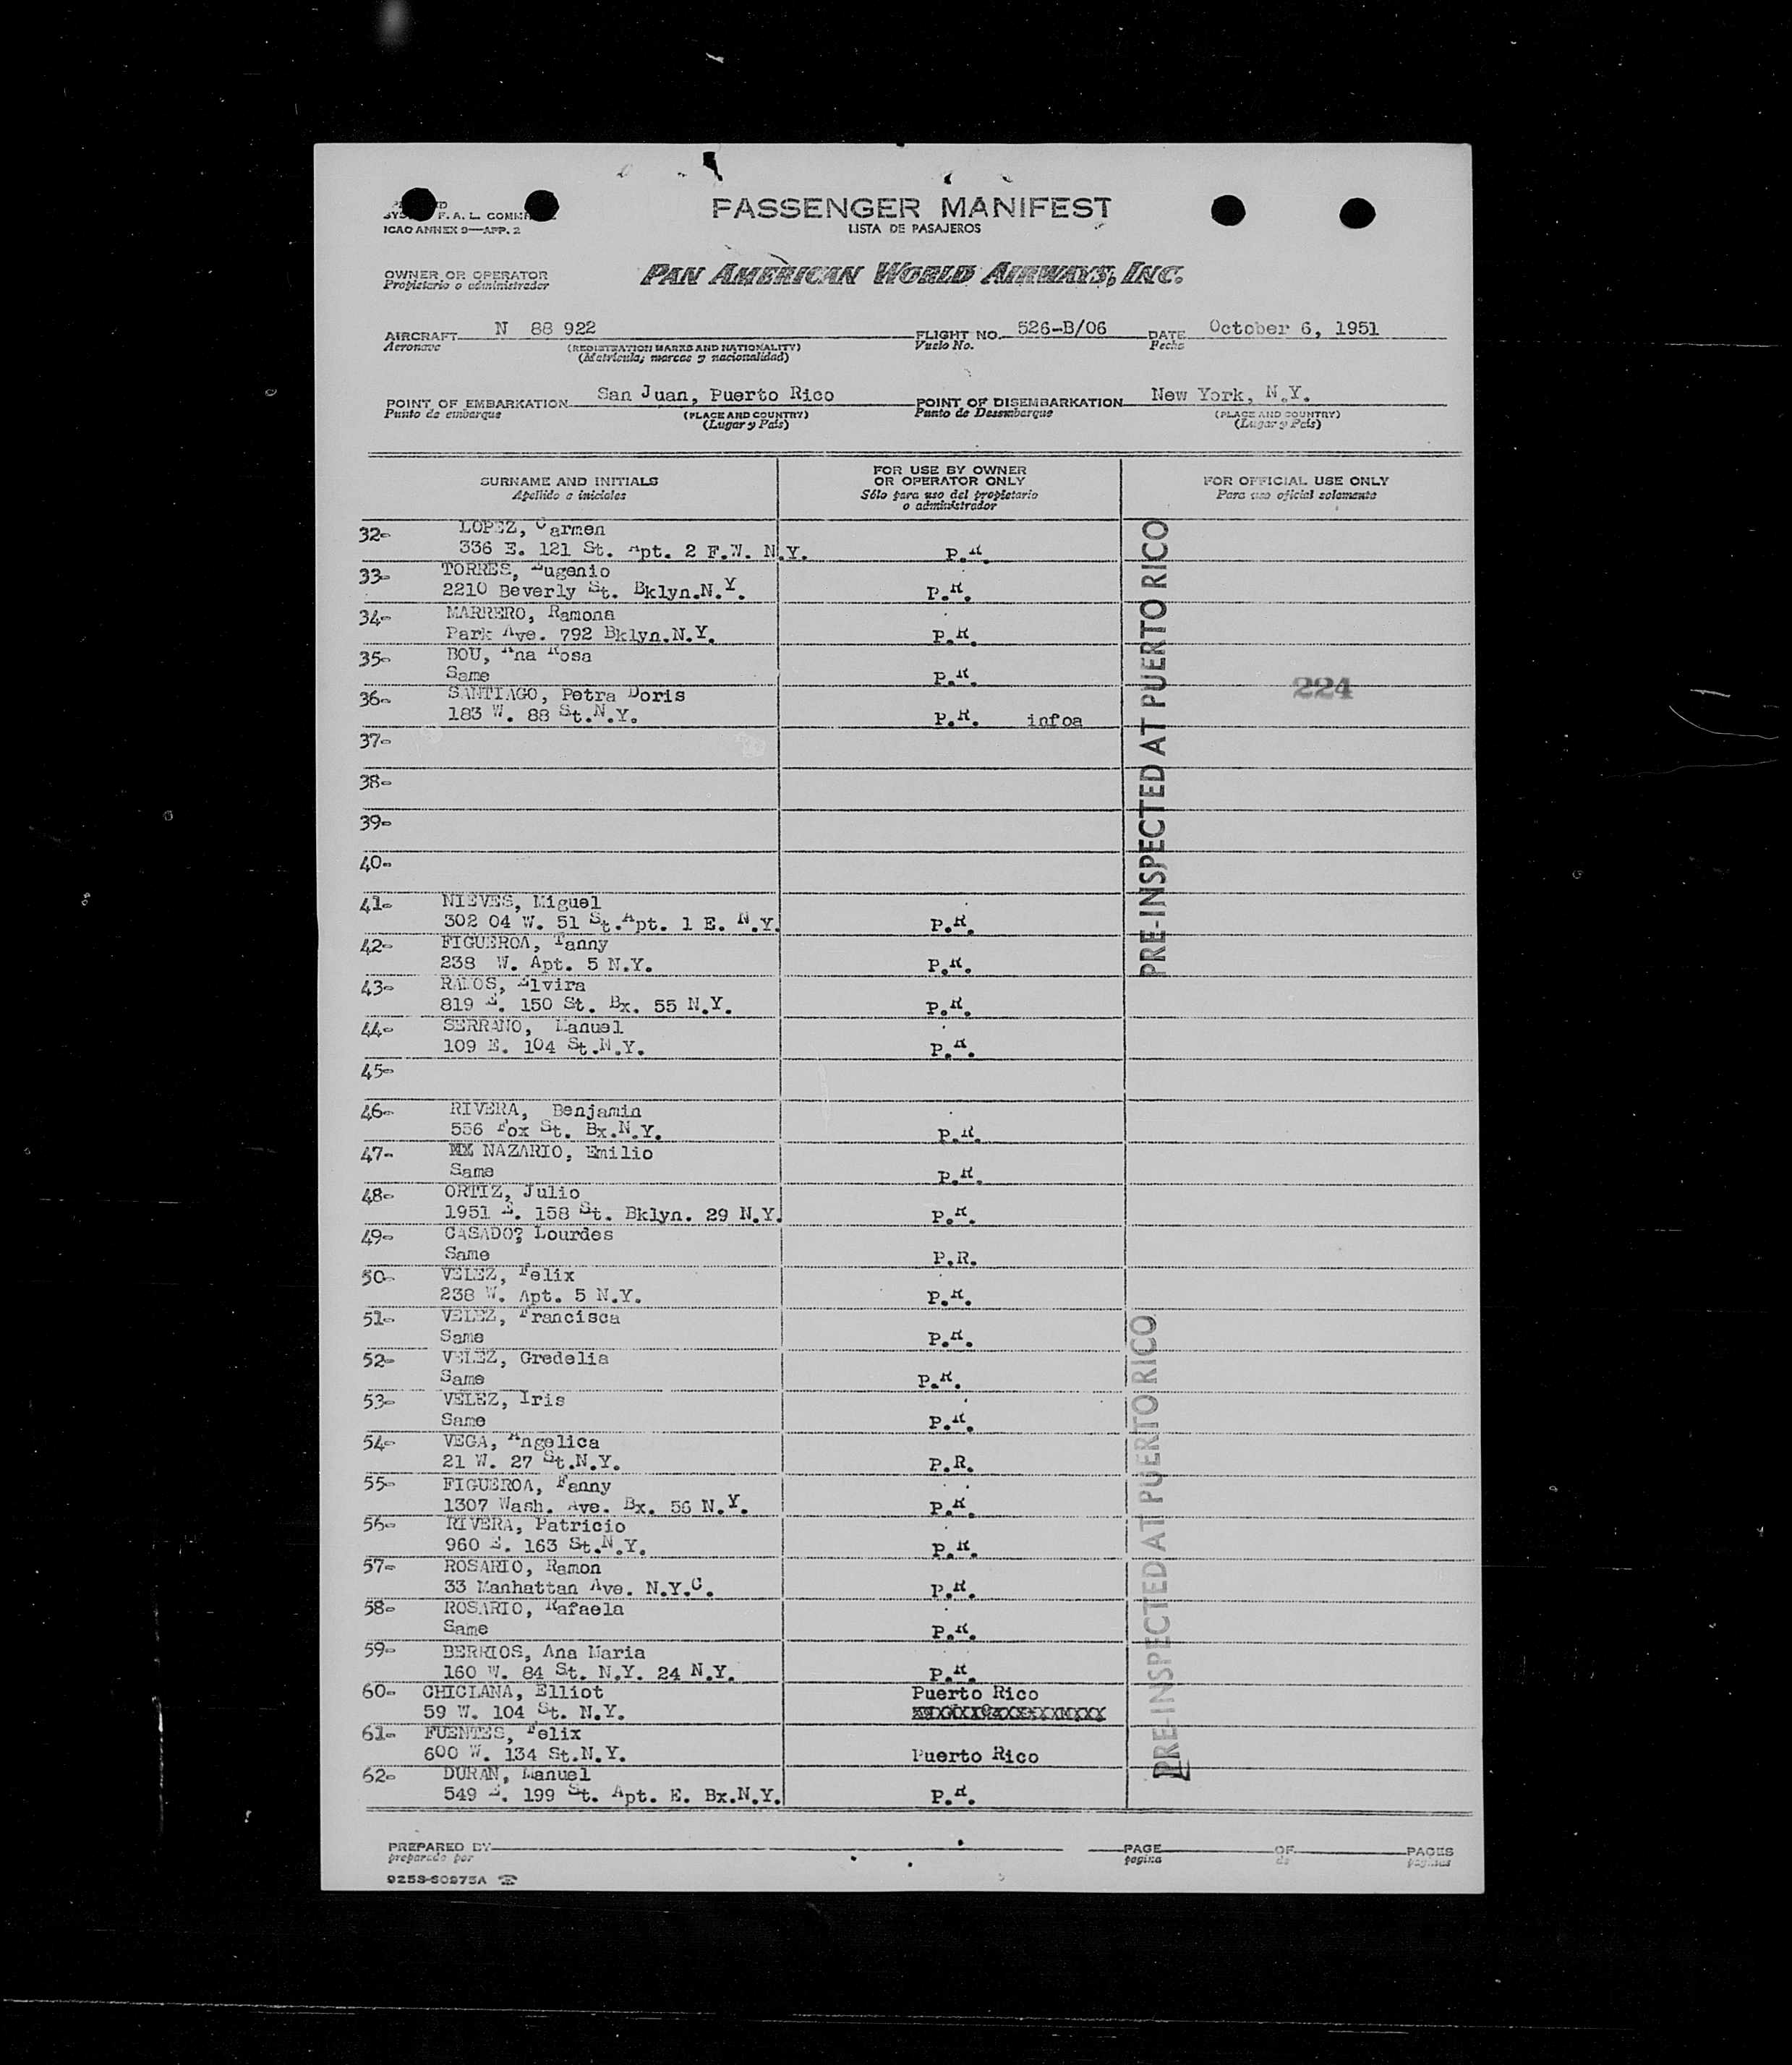 SYS F. A. L. COMM
ICAO ANNEX 9—APP. 2
PASSENGER MANIFEST
LISTA DE PASAJEROS
OWNER OR OPERATOR
Propietario o administrador
PAN AMERICAN WORLD AIRWAYS, INC.
AIRCRAFT N 88 922 FLIGHT NO. 526-B/06 DATE October 6, 1951
Aeronave (REGISTRATION MARKS AND NATIONALITY) Vuelo No. Fecha
(Matricula; marcas y nacionalidad)
POINT OF EMBARKATION San Juan, Puerto Rico POINT OF DISEMBARKATION New York, N.Y.
Punto de embarque (PLACE AND COUNTRY) Punto de Desembarque (PLACE AND COUNTRY)
(Lugar y País) (Lugar y País)
SURNAME AND INITIALS FOR USE BY OWNER OR OPERATOR ONLY FOR OFFICIAL USE ONLY
Apellido e iniciales Sólo para uso del propietario o administrador Para uso oficial solamente
32- LOPEZ, Carmen
336 E. 121 St. Apt. 2 F.W. N.Y. P.R.
33- TORRES, Eugenio
2210 Beverly St. Bklyn.N.Y. P.R.
34- MARRERO, Ramona
Park Ave. 792 Bklyn.N.Y. P.R.
35- BOU, Ana Rosa
Same P.R.
36- SANTIAGO, Petra Doris
183 W. 88 St.N.Y. P.R. infoa
224
37-
38-
39-
40-
41- NIEVES, Miguel
302 04 W. 51 St.Apt. 1 E. N.Y. P.R.
42- FIGUEROA, Fanny
238 W. Apt. 5 N.Y. P.R.
43- RAMOS, Elvira
819 E. 150 St. Bx. 55 N.Y. P.R.
44- SERRANO, Manuel
109 E. 104 St.N.Y. P.R.
45-
46- RIVERA, Benjamin
556 Fox St. Bx.N.Y. P.R.
47- MX NAZARIO, Emilio
Same P.R.
48- ORTIZ, Julio
1951 E. 158 St. Bklyn. 29 N.Y. P.R.
49- CASADO? Lourdes
Same P.R.
50- VELEZ, Felix
238 W. Apt. 5 N.Y. P.R.
51- VELEZ, Francisca
Same P.R.
52- VELEZ, Gredelia
Same P.R.
53- VELEZ, Iris
Same P.R.
54- VEGA, Angelica
21 W. 27 St.N.Y. P.R.
55- FIGUEROA, Fanny
1307 Wash. Ave. Bx. 56 N.Y. P.R.
56- RIVERA, Patricio
960 E. 163 St.N.Y. P.R.
57- ROSARIO, Ramon
33 Manhattan Ave. N.Y.C. P.R.
58- ROSARIO, Rafaela
Same P.R.
59- BERRIOS, Ana Maria
160 W. 84 St. N.Y. 24 N.Y. P.R.
60- CHICLANA, Elliot Puerto Rico
59 W. 104 St. N.Y.
61- FUENTES, Felix
600 W. 134 St.N.Y. Puerto Rico
62- DURAN, Manuel
549 E. 199 St. Apt. E. Bx.N.Y. P.R.
PRE-INSPECTED AT PUERTO RICO
PRE-INSPECTED AT PUERTO RICO
PREPARED BY PAGE OF PAGES
preparado por pagina de páginas
9253-60975A